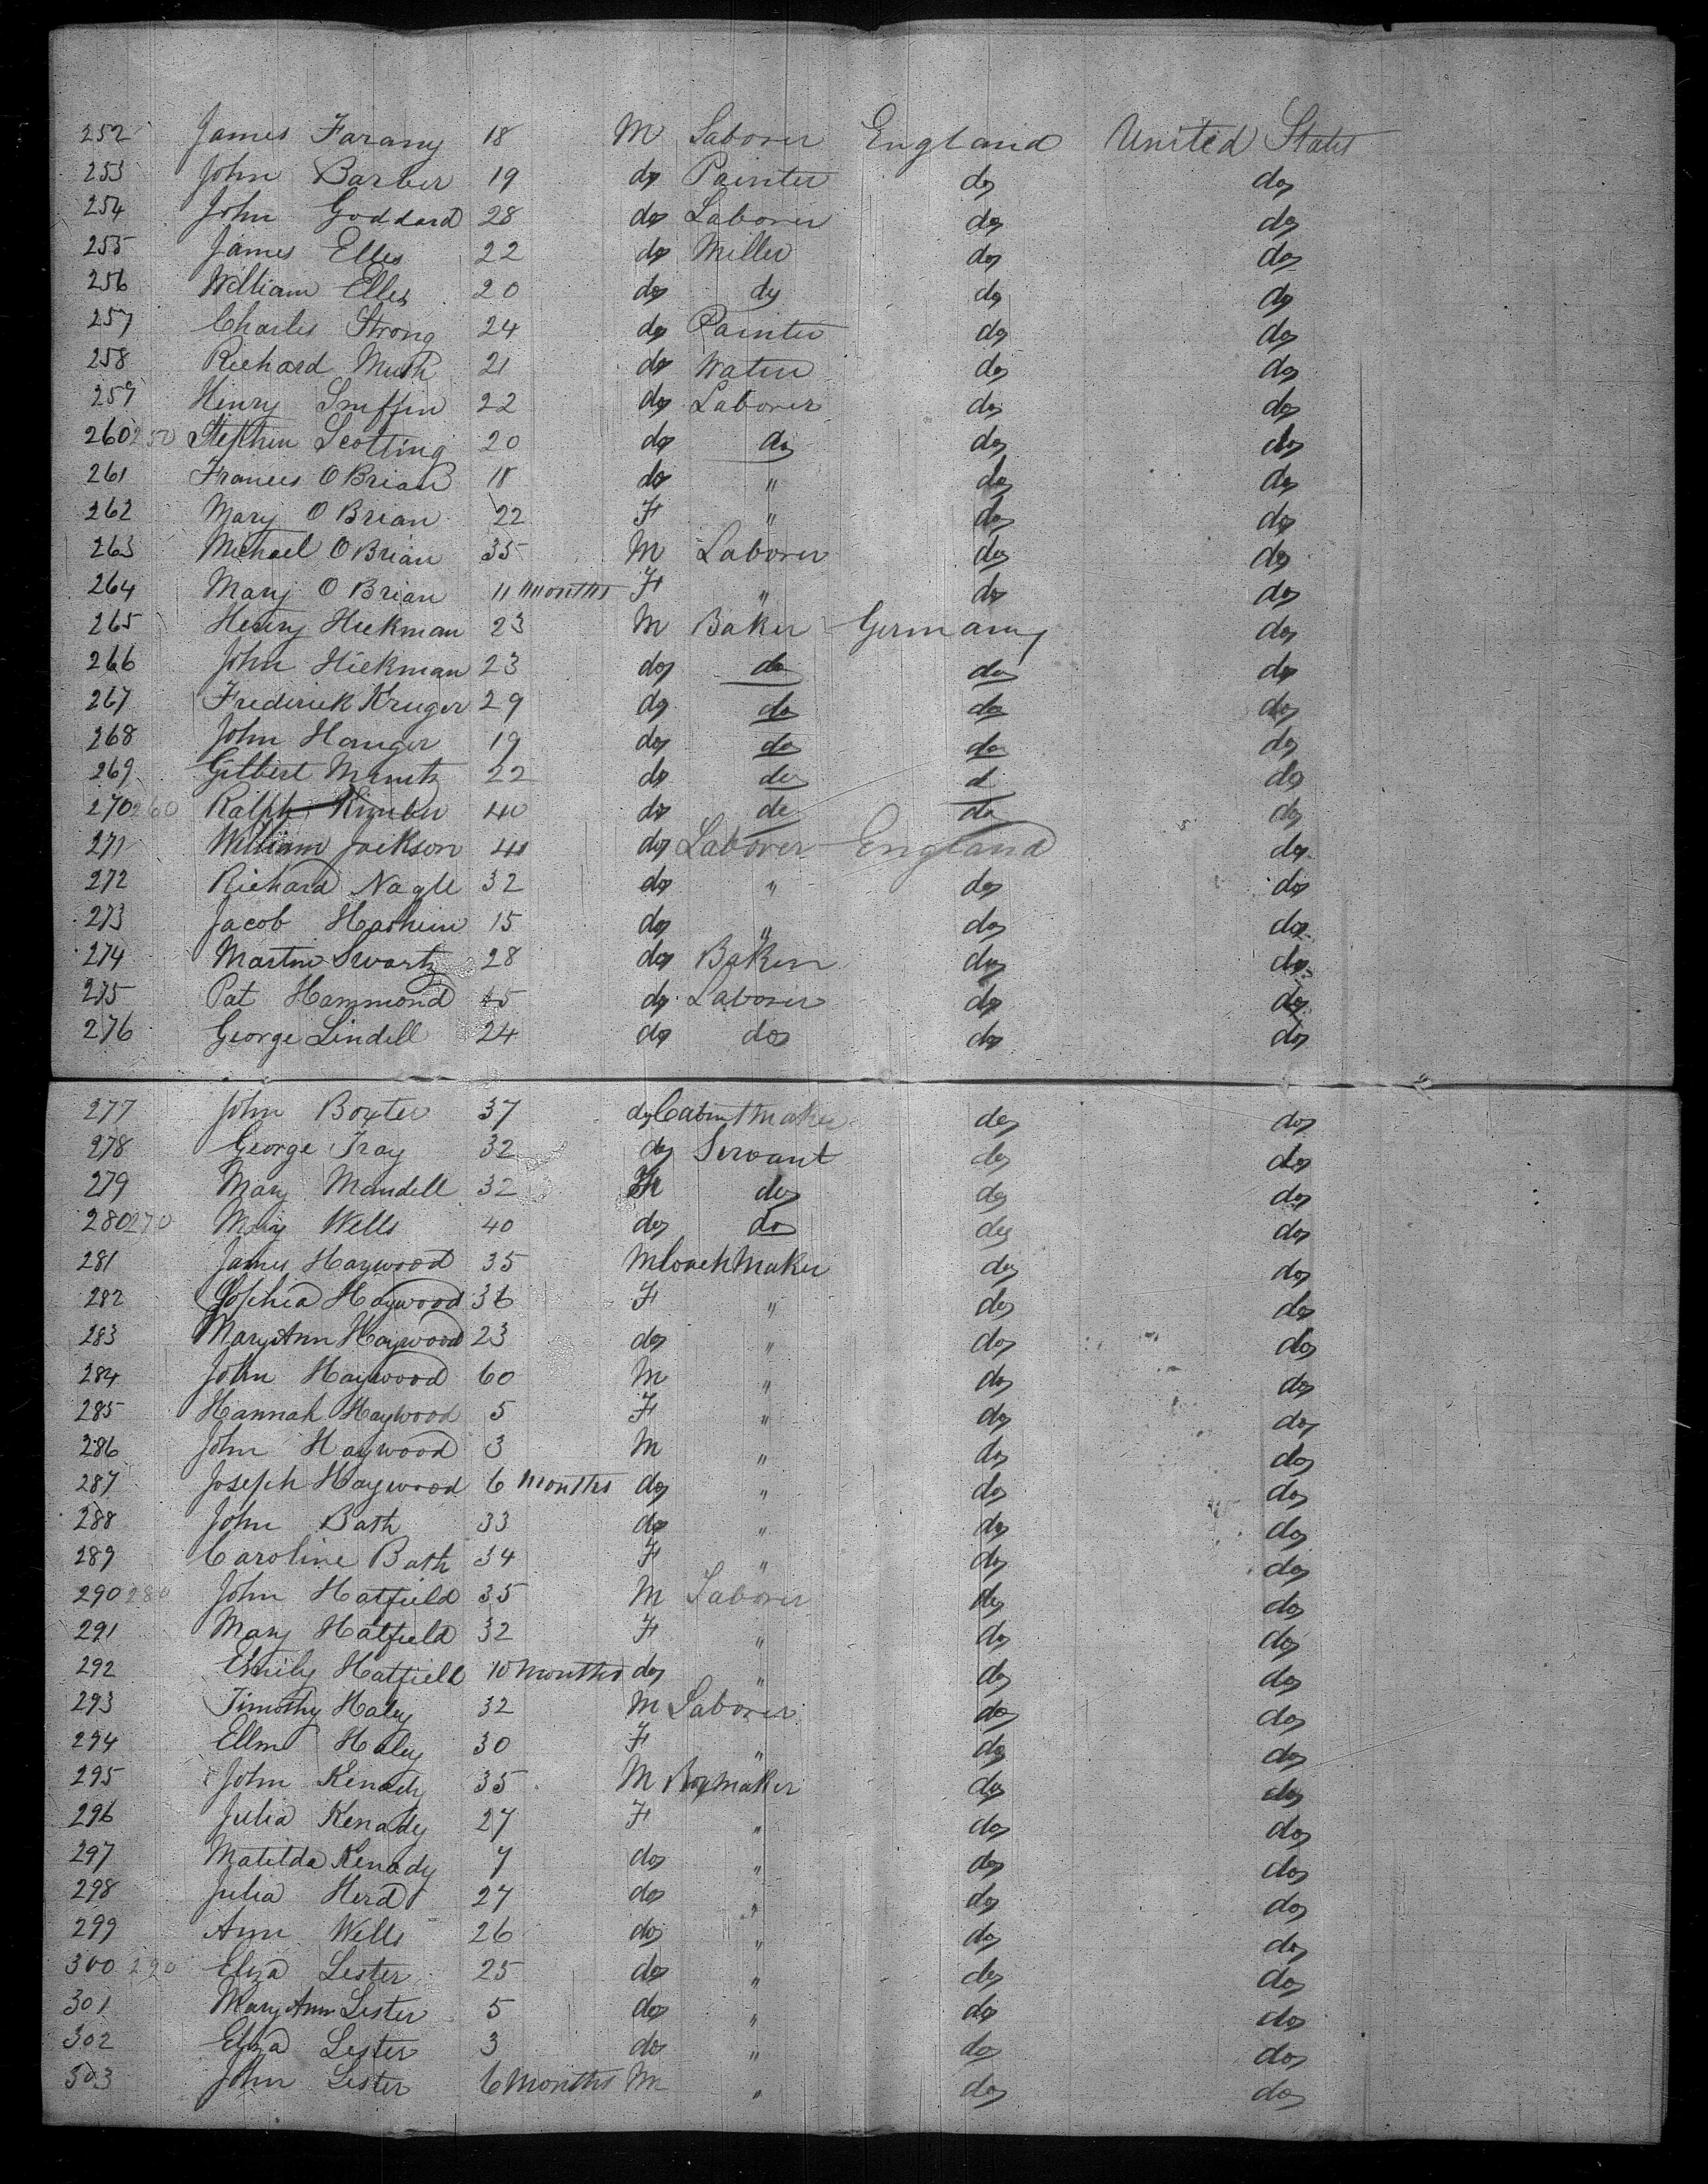 252 James Farany 18 M Laborer England United States
253 John Barber 19 do Painter do do
254 John Goddard 28 do Laborer do do
255 James Elles 22 do Miller do do
256 William Elles 20 do do do do
257 Charles Strong 24 do Painter do do
258 Richard Mush 21 do do do
259 Henry Sniffin 22 do Laborer do do
260 250 Stephen Scotting 20 do do do do
261 Frances O Brian 18 do " do do
262 Mary O Brian 22 F " do do
263 Michael O Brian 35 M Laborer do do
264 Mary O Brian 11 months F " do do
265 Henry Hickman 23 M Baker Germany do
266 John Hickman 23 do do do do
267 Frederick Kruger 29 do do do do
268 John Hanger 19 do do do do
269 Gilbert 22 do do d do
270 260 Ralph Kimber 40 do do do do
271 William Jackson 41 do Laborer England do
272 Richard Nagle 32 do " do do
273 Jacob 15 do " do do
274 Martin Swartz 28 do Baker do do
275 Pat Hammond 45 do Laborer do do
276 George Lindell 24 do do do do
277 John Boxter 37 do Cabintmaker do do
278 George Tray 32 do Servant do do
279 Mary Mandell 32 F do do do
280 270 Mary Wells 40 do do do do
281 James Haywood 35 M Coachmaker do do
282 Sophia Haywood 36 F " do do
283 Mary Ann Haywood 23 do " do do
284 John Haywood 60 M " do do
285 Hannah Haywood 5 F " do do
286 John Haywood 3 M " do do
287 Joseph Haywood 6 months do " do do
288 John Bath 33 do " do do
289 Caroline Bath 34 F " do do
290 280 John Hatfield 35 M Laborer do do
291 Mary Hatfield 32 F " do do
292 Emily Hatfield 10 months do " do do
293 Timothy Haley 32 M Laborer do do
294 Ellen Haley 30 F " do do
295 John Kenady 35 M Boxmaker do do
296 Julia Kenady 27 F " do do
297 Matilda Kenady 7 do " do do
298 Julia Herd 27 do " do do
299 Ann Wells 26 do " do do
300 290 Eliza Lester 25 do " do do
301 Mary Ann Lester 5 do " do do
302 Eliza Lester 3 do " do do
303 John Lester 6 months M " do do